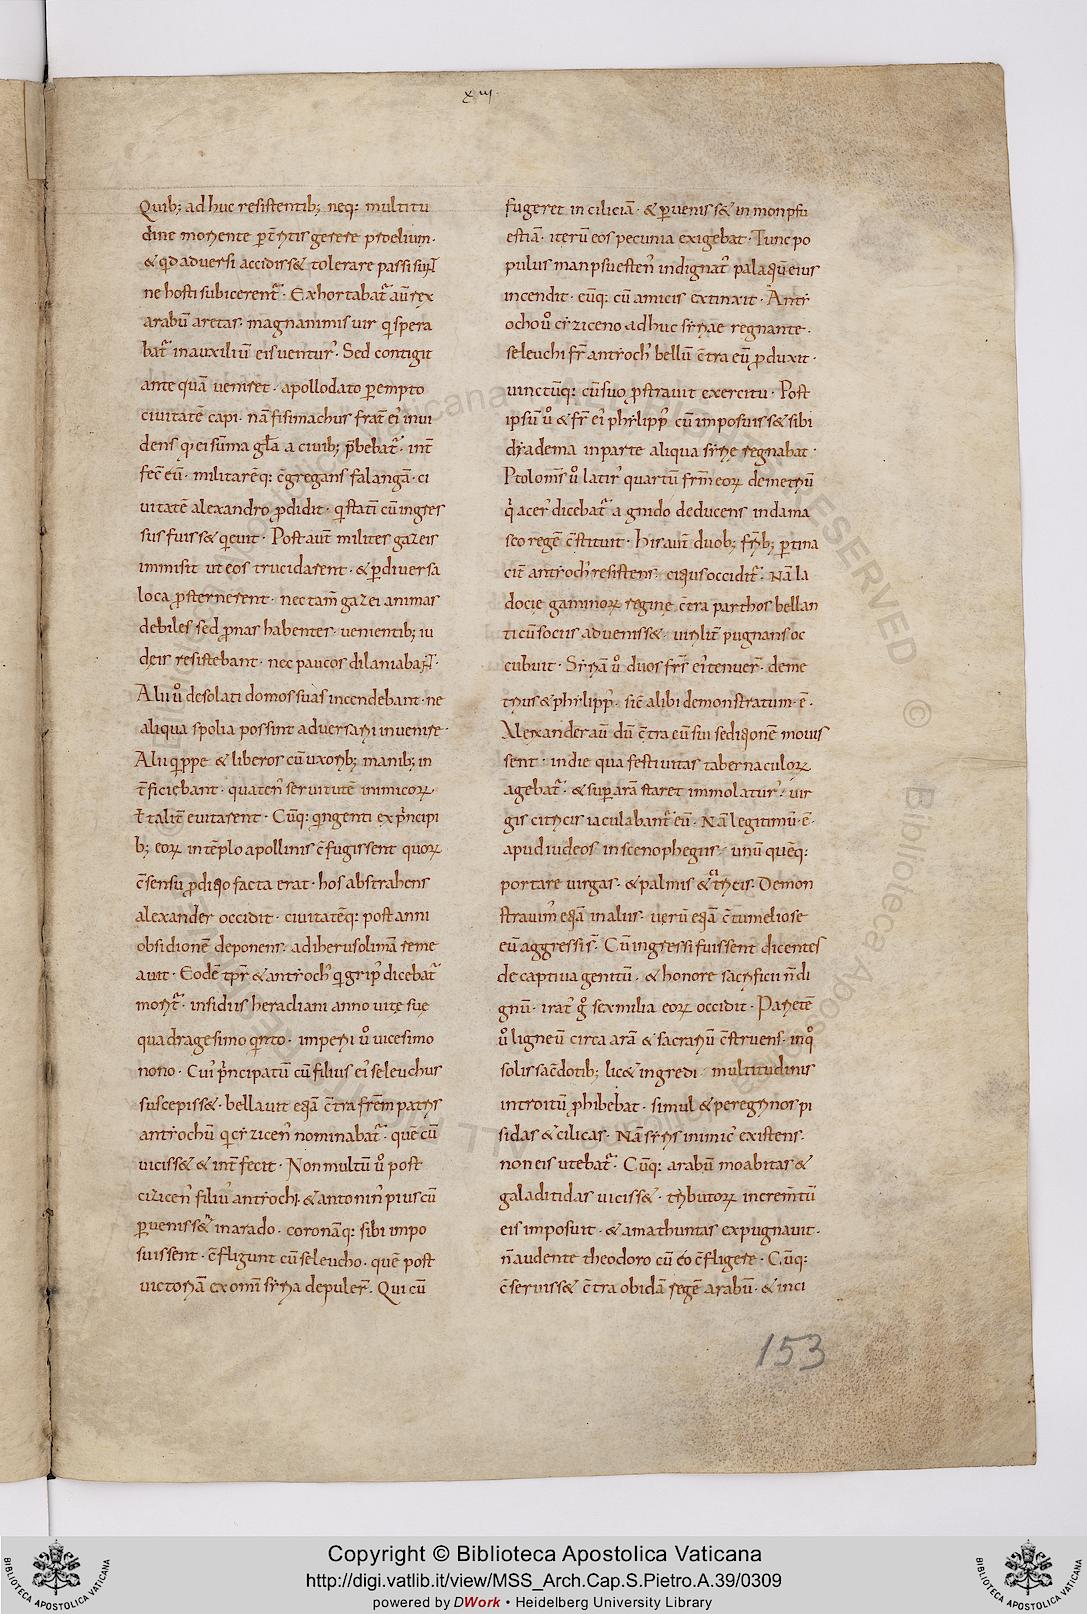 xiij.
Quib; adhuc resistentib; neq: multitu
dine moriente ꝑt̄ritis gerere prelium.
& qđ adversi accidiss& tolerare passi sunt
ne hosti subicerent᷑. Exhortabat᷑ aūt rex
arabū aretas. magnanimis uir q spera
bat᷑ in auxiliū eis uentur᷒. Sed contigit
ante quā veniret. apollodato ꝑempto
civitatē capi. nā fisimachus frat̄ ei᷒ inui
dens q᷒ ei sūma gl̄a a civib; p̄bebat᷑. int̄
fec̄ eū. militarēq: c̄gregans falangā. ci
vitatē alexandro ꝓdidit. q statī cū ingres
sus fuiss& qeuit. Post aut̄ milites gazeis
immisit ut eos trucidarent. & ꝑ diversa
loca ꝓsternerent. nec tam̄ gazei animas
debiles sed pronas habentes. venientib; iu
deis resistebant. nec paucos dilaniabant.
Alii ů desolati domos suas incendebant. ne
aliqua spolia possint adversarii invenire.
Alii qppe & liberos cū uxorib; manib; in
t̄ficiebant. quaten᷒ servitutē inimicoꝝ.
t̄ talit̄ evitarent. Cūq: qngenti ex p̄ncipi
b; eoꝝ in tēplo apollinis c̄fugissent quoꝝ
c̄sensu ꝓditio facta erat. hos abstrahens
alexander occidit. civitatēq: post anni
obsidionē deponens. ad iherusolimā reme
avit. Eodē tꝑr & antioch᷒ q grip᷒ dicebat᷑
morit᷑. insidiis heracliani anno vitę suę
quadragesimo qinto. imperii ů vicesimo
nono. Cui᷒ p̄ncipatū cū filius ei᷒ seleuchus
suscepiss&. bellavit etiā c̄tra frēm patris
antiochū q cizicen᷒ nominabat᷑. quē cū
viciss& & int̄fecit. Non multū ů post
cizicen᷒ filiu᷒ antiochi. & antonin᷒ pius cū
ꝑveniss& in arado. coronāq: sibi impo
suissent. c̄fligunt cū seleucho. quē post
victoriā ex omī syria depuler̄. Qui cū
fugeret in ciliciā. & ꝑveniss& in monpsu
estiā. iterū eos pecunia exigebat. Tunc po
pulus manpsuesten᷒ indignat᷒ palatiū eius
incendit. eūq: cū amicis extinxit. Anti
ocho ů cyziceno adhuc syriae regnante.
seleuchi fr̄ antioch᷒ bellū c̄tra eū ꝓduxit.
vinctūq: cū suo ꝓstravit exercitu. Post
ipsū ů & fr̄ ei᷒ philipp᷒ cū imposuiss& sibi
dyadema in parte aliqua syrię regnabat.
Ptolom̄s ů latir᷒ quartū frm̄ eoꝝ demetriū
q̇ acer᷒ dicebat᷑ a gnido deducens in dama
sco regē c̄stituit. His aut̄ duob; frib; ꝑtina
cit̄ antioch᷒ resistens. citius occidit᷑. Nā la
docię gaminoꝝ reginę c̄tra parthos bellan
ti cū sociis adveniss&. virilit̄ pugnans oc
cubuit. Syriā ů duo frs̄ ei᷒ tenuer̄. deme
trius & philipp᷒. sic̄ alibi demonstratum. ē.
Alexander aū dū c̄tra eū sui seditionē movis
sent. in die qua festivitas tabernaculoꝝ
agebat᷑. & suꝑ arā staret immolatur᷒. uir
gis citricis iaculabant᷑ eū. Nā legitimū. ē.
apud iudeos in scenophegiis. unū quēq:
portare virgas. & palmis & citricis. Demon
stravim᷒ etiā in aliis. verū etiā c̄tumeliose
eū aggressi s̄. Cū ingressi fuissent dicentes
de captiva genitū. & honore sacrificii n̄ di
gnū. irat᷒ g̊ sex milia eoꝝ occidit. Parietē
ů ligneū circa arā & sacrariū c̄struens. inq̊
solis sac̄dotib; lic& ingredi. multitudinis
introitū ꝓhibebat. simul & peregrinos pi
sidas & cilicas. Nā syris inimic᷒ existens.
non eis utebat᷑. Cūq: arabū moabitas &
galaditidas viciss&. tributoꝝ increm̄tū
eis imposuit. & amathuntas expugnavit.
n̄ audente theodoro cū eo c̄fligere. Cūq:
c̄seruiss& c̄tra obidā regē arabū. & inci
153
Copyright © Biblioteca Apostolica Vaticana
http://digi.vatlib.it/view/MSS_Arch.Cap.S.Pietro.A.39/0309
powered by DWork • Heidelberg University Library